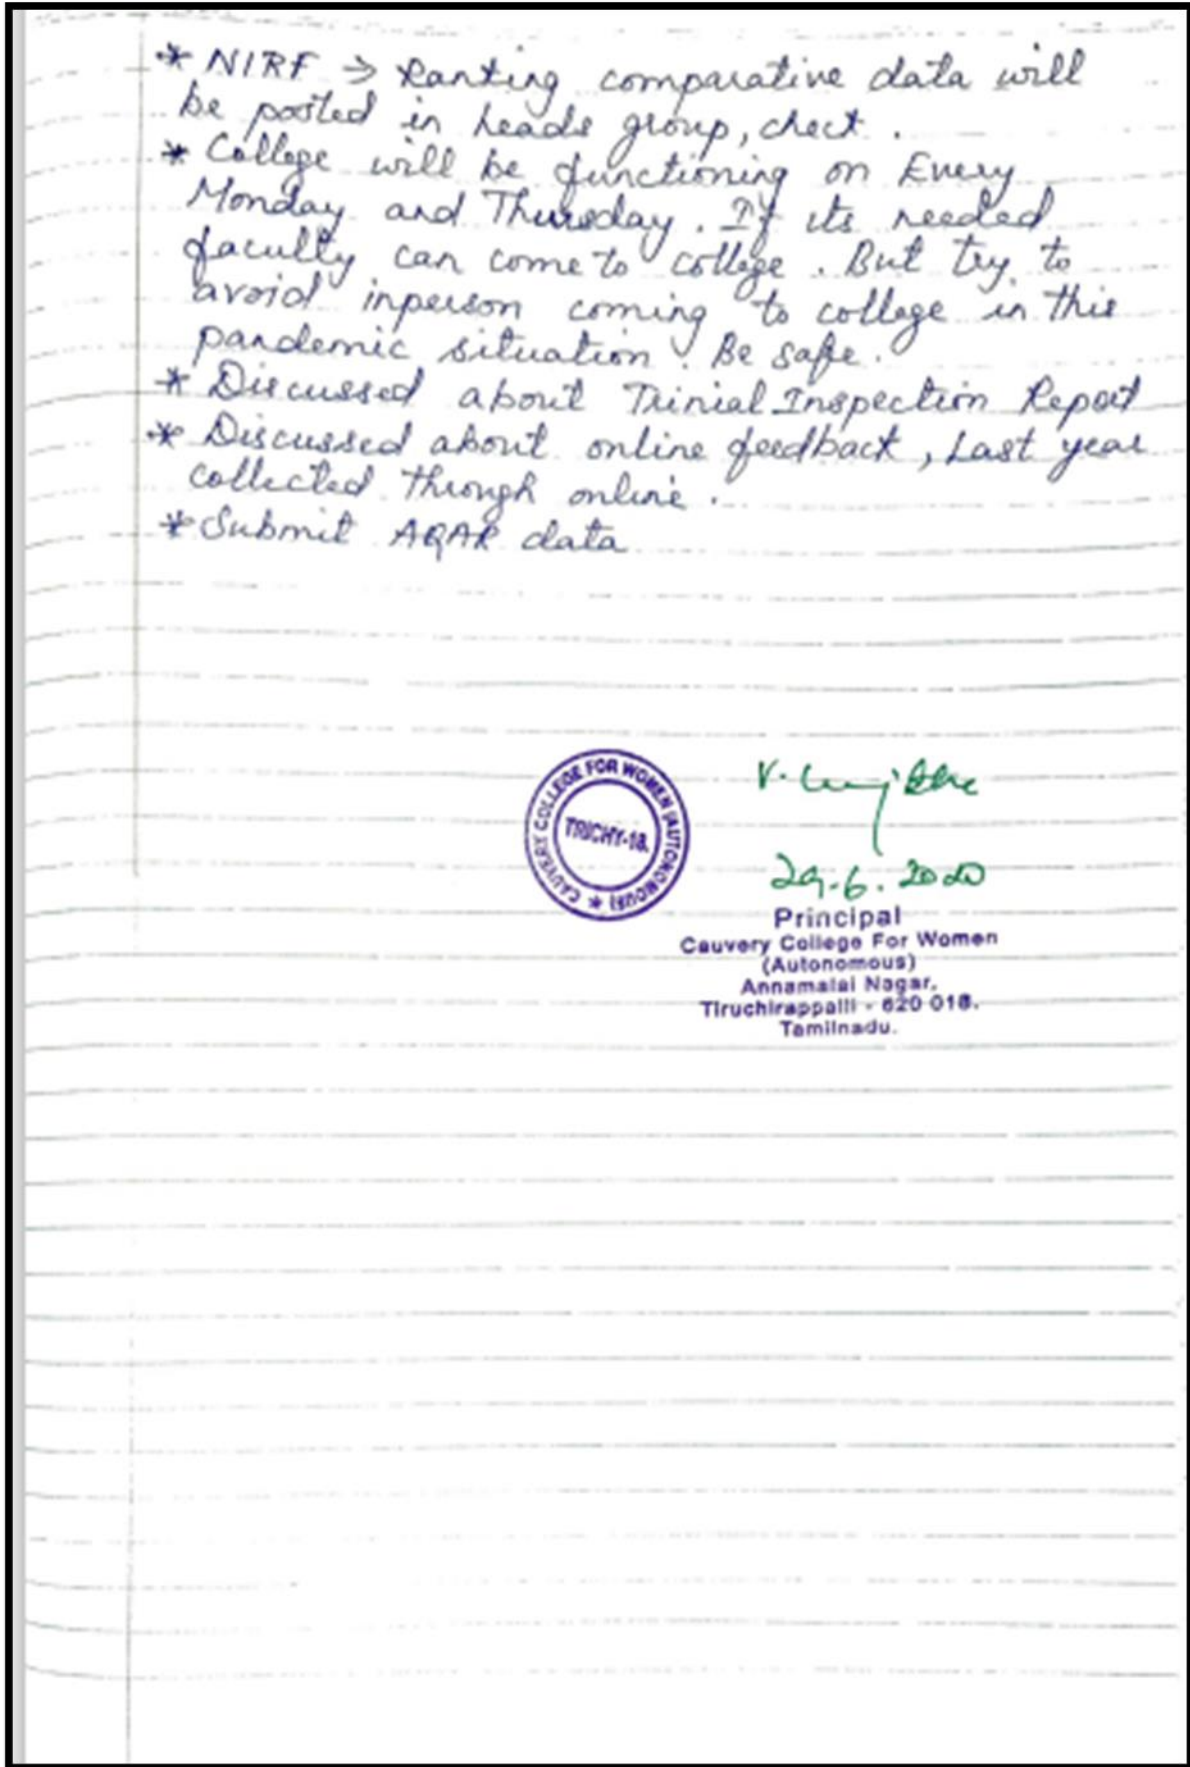 * NIRF → Ranking comparative data will
be posted in heads group, check .
* College will be functioning on Every
Monday and Thursday. If its needed
faculty can come to college . But try to
avoid inperson coming to college in this
pandemic situation. Be safe.
* Discussed about Trinial Inspection Report
* Discussed about online feedback, Last year
collected through online .
* Submit AQAR data
CAUVERY COLLEGE FOR WOMEN (AUTONOMOUS) *
TRICHY-18.
29.6.2020
Principal
Cauvery College For Women
(Autonomous)
Annamalai Nagar,
Tiruchirappalli - 620 018.
Tamilnadu.